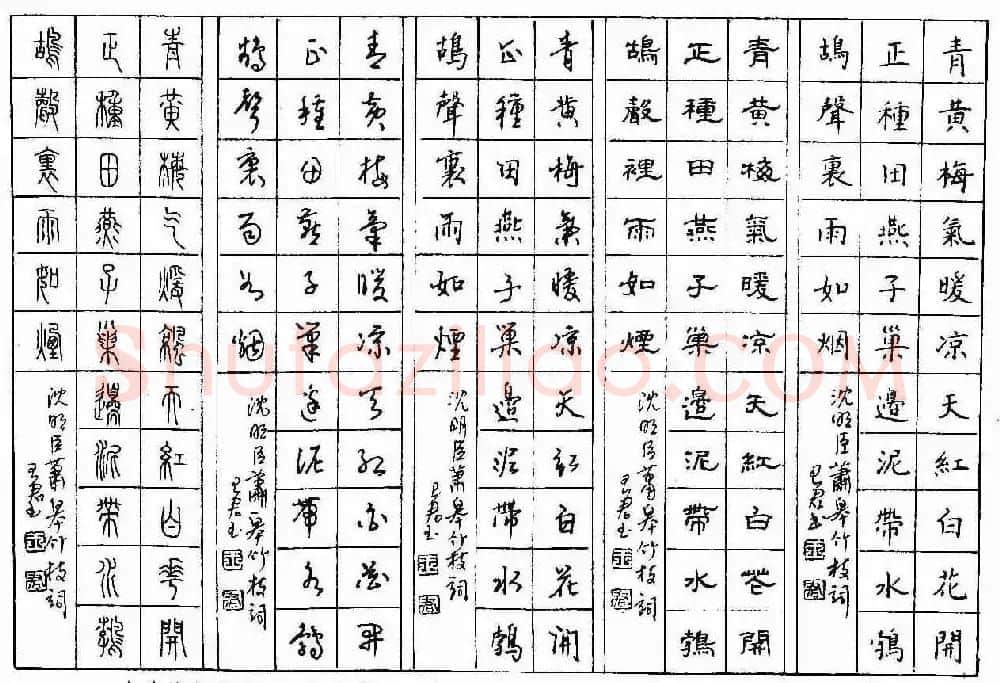 青黄梅氣暖凉天紅白花開
正種田燕子巢邊泥帶水鵓
鴣聲裏雨如烟
沈明臣蕭皋竹枝詞
青黄梅氣暖凉天紅白花開
正種田燕子巢邊泥帶水鵓
鴣聲裡雨如煙
沈明臣蕭皋竹枝詞
青黄梅氣暖凉天紅白花開
正種田燕子巢邊泥帶水鵓
鴣聲裏雨如煙
沈明臣蕭皋竹枝詞
青黄梅氣暖凉天紅白花開
正種田燕子巢邊泥帶水鵓
鴣聲裏雨如烟
沈明臣蕭皋竹枝詞
青黄梅气煖凉天紅白華開
正種田燕子巢邊泥帶水鵓
鴣聲裏雨如煙
沈明臣蕭皋竹枝詞
Shufaziliao.COM